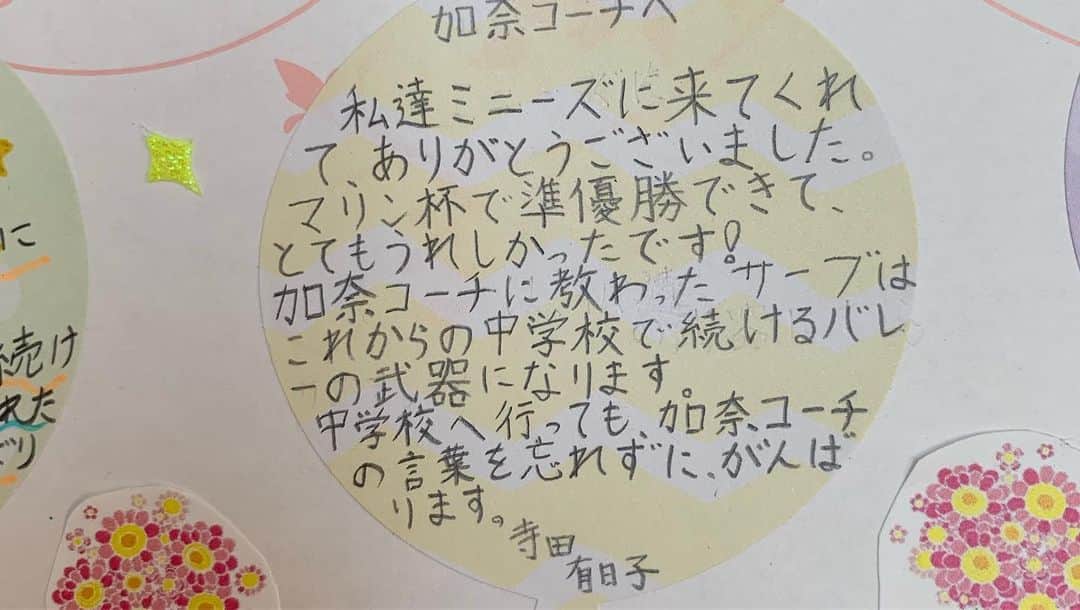 加奈コーチへ
私達ミニーズに来てくれ
て、ありがとうございました。
マリン杯で準優勝できて、
とてもうれしかったです!
加奈コーチに教わったサーブは
これからの中学校で続けるバレ
ーの武器になります。
中学校へ行っても、加奈コーチ
の言葉を忘れずに、がんば
ります。
寺田
有日子
に
続け
れた
り